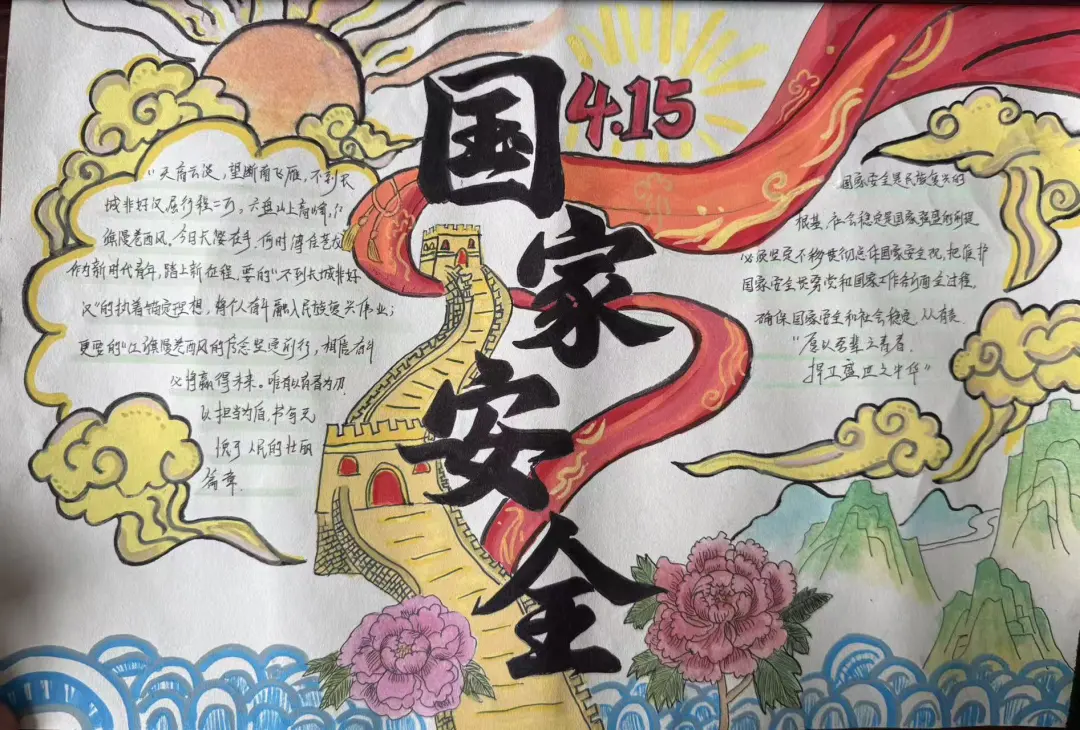 国家安全
4.15
"天高云淡，望断南飞雁，不到长
城非好汉，屈行程二万，六盘山上高峰，红
旗漫卷西风，今日长缨在手，何时缚住苍龙
作为新时代青年，踏上新征程，要的"不到长城非好
汉"的执着锚定理想，将个人奋斗融入民族复兴伟业；
更要的"红旗漫卷西风的信念坚定前行，相信奋斗
必将赢得未来。唯有以青春为刃
以担当为盾，书写无
愧于人民的壮丽
篇章.
国家安全是民族复兴的
根基，社会稳定是国家强盛的前提
必须坚定不移贯彻总体国家安全观，把维护
国家安全贯穿党和国家工作各方面全过程，
确保国家安全和社会稳定.从有我
"愿以吾辈之青春
捍卫盛世之中华"